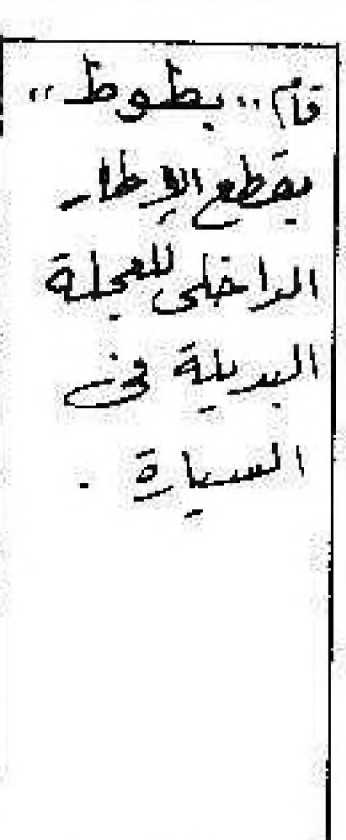 قام ,, بطوط ,,
بقطع الإطار
الداخلى للعجلة
البديلة فى
السيارة .